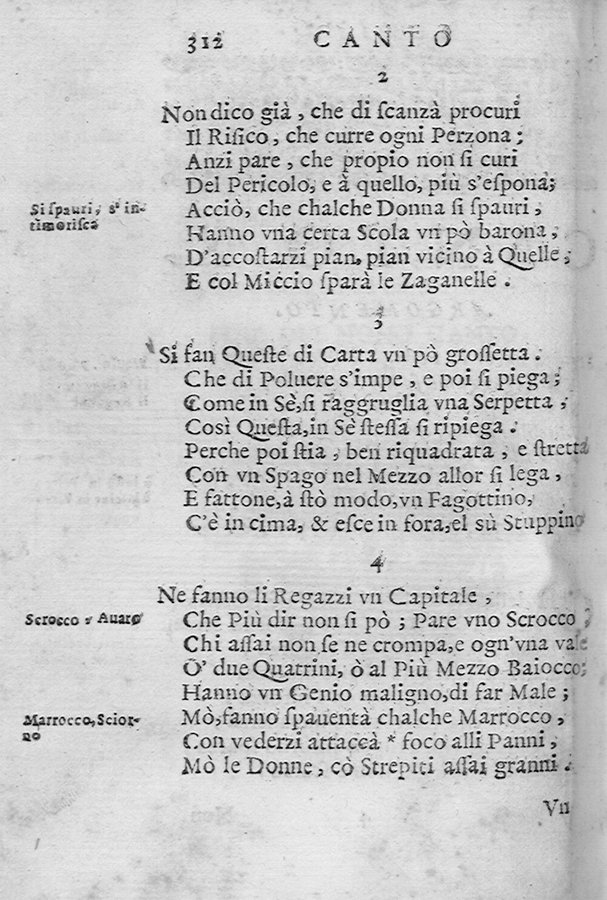 312 CANTO
2
Non dico già , che di ſcanzà procuri
Il Riſico, che curre ogni Perzona ;
Anzi pare , che propio non ſi curi
Del Pericolo, e à quello, più s'eſpona;
Si ſpauri, s' in-
timoriſca
Acciò, che chalche Donna ſi ſpauri ,
Hanno vna certa Scola vn pò barona ,
D'accoſtarzi pian, pian vicino à Quelle ,
E col Miccio ſparà le Zaganelle .
3
Si fan Queſte di Carta vn pò groſſetta .
Che di Poluere s'impe , e poi ſi piega ;
Come in Sè,ſi raggruglia vna Serpetta ,
Così Queſta,in Sè ſteſſa ſi ripiega .
Perche poi ſtia , ben riquadrata , e ſtretta
Con vn Spago nel Mezzo allor ſi lega ,
E fattone,à ſtò modo,vn Fagottino,
C'è in cima, & eſce in fora,el sù Stuppino
4
Ne fanno li Regazzi vn Capitale ,
Scrocco , Auaro
Che Più dir non ſi pò ; Pare vno Scrocco ,
Chi aſſai non ſe ne crompa,e ogn'vna vale
O' due Quatrini, ò al Più Mezzo Baiocco;
Hanno vn Genio maligno,di far Male ;
Marrocco, Scior-
no
Mò,fanno ſpauentà chalche Marrocco ,
Con vederzi attaccà * foco alli Panni ,
Mò le Donne , cò Strepiti aſſai granni .
Vn